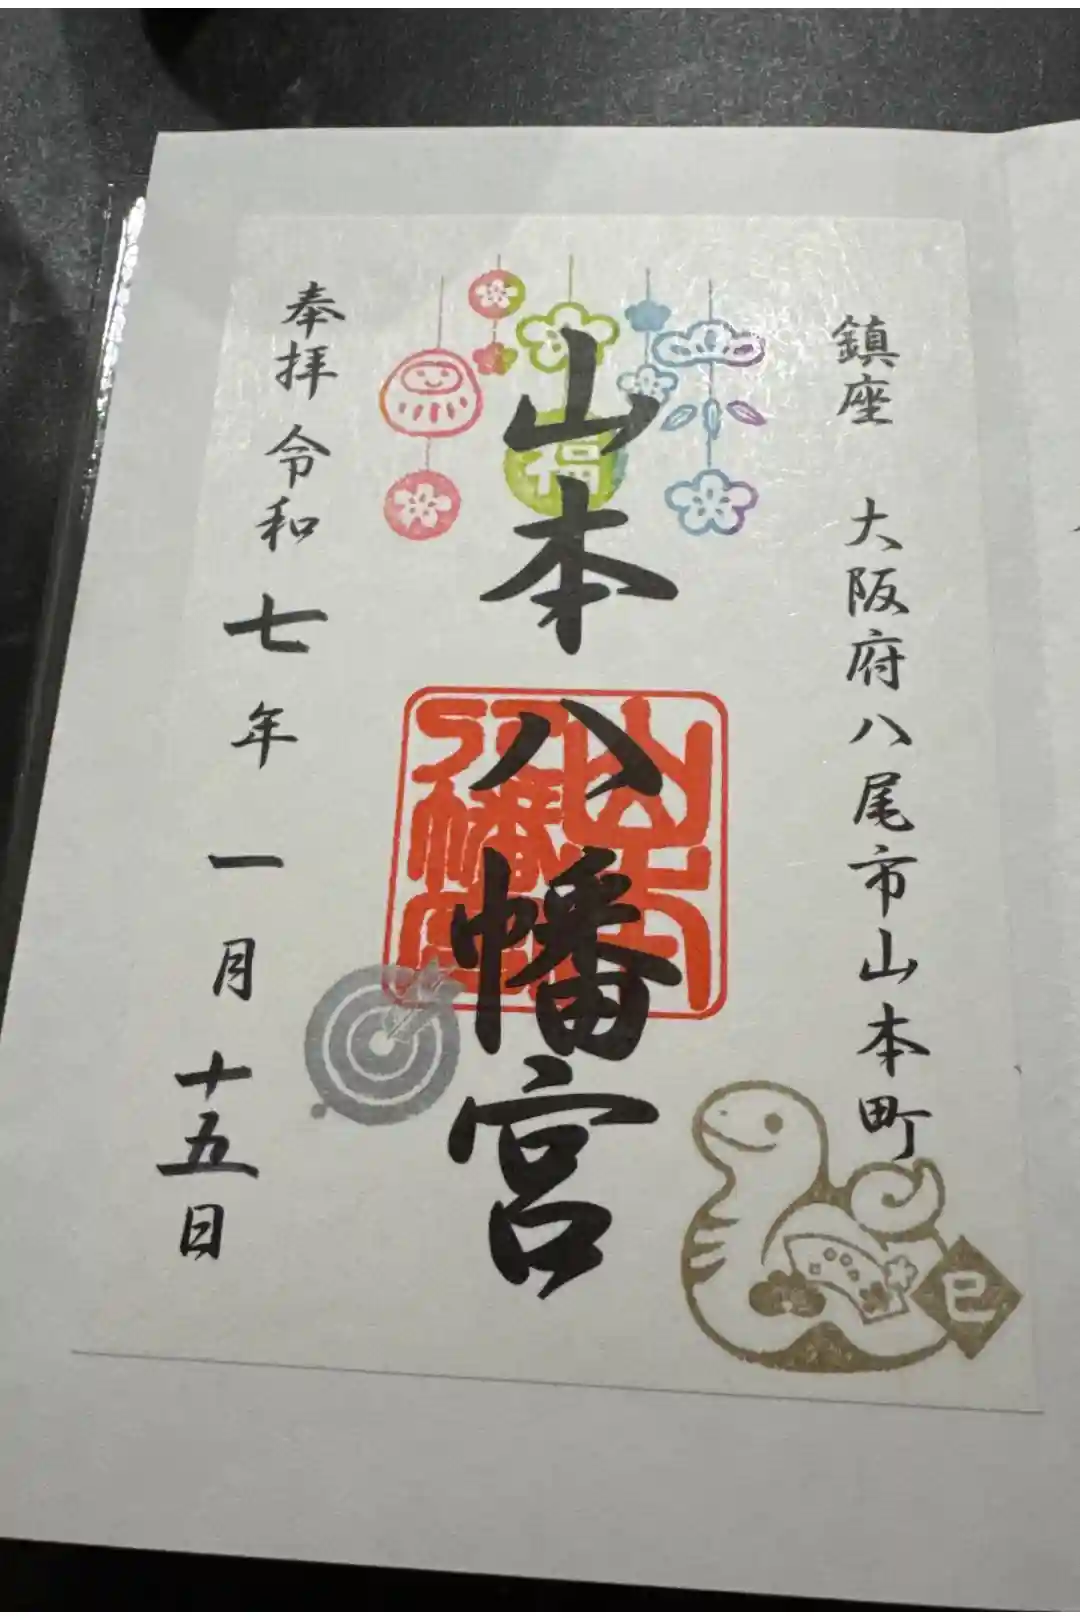 鎮座 大阪府八尾市山本町
福
山本八幡宮
山本
八幡宮
奉拝 令和七年 一月十五日
巳